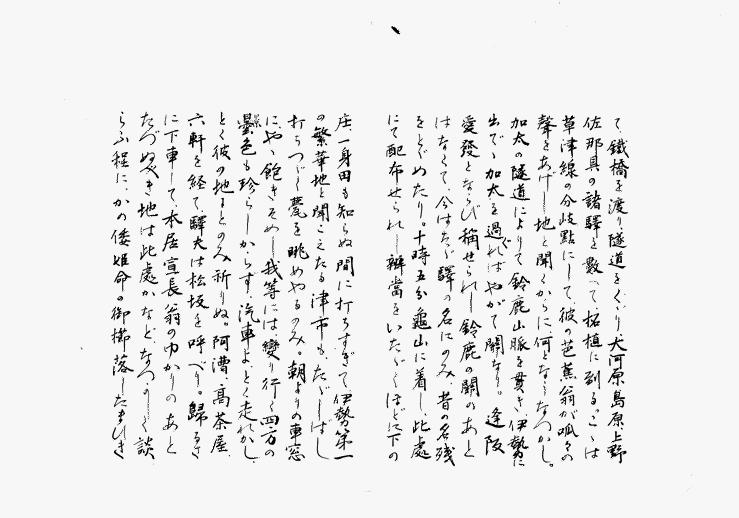 て、鐵橋を渡り、隧道をくゞり大河原島原上野
佐那具の諸驛を數へて柘植に到る。こゝは
草津線の分岐點にして、彼の芭蕉翁が呱々の
聲をあげし地と聞くからに何となうなつかし。
加太の隧道によりて鈴鹿山脈を貫き、伊勢に
出でゝ加太を過ぐればやがて關なり。逢阪
愛發とならび稱せられし鈴鹿の關のあと
はなくて、今はたゞ驛の名にのみ、昔の名殘
をとゞめたり。十時五分龜山に着し、此處
にて配布せられし辨當をいたゞくほどに下の
庄、一身田も知らぬ間に打ちすぎて伊勢第一
の繁華地と聞こえたる津市も、たゞしばし
打ちつゞく甍を眺めやるのみ。朝よりの車窓
にやゝ飽きそめし我等には、變り行く四方の
景色も珍らしからず、汽車よ、とく走れかし、
とく彼の地までとのみ祈りぬ。阿漕、高茶屋、
六軒を経て、驛夫は松坂を呼べり。歸るさ
に下車して、本居宣長翁のゆかりのあと
たづぬべき地は此處かなど、なつかしく談
らふ程に、かの倭姫命の御櫛落したまひき